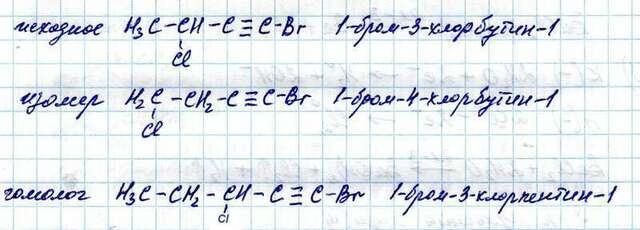 исходное H₃C–CH–C≡C–Br 1-бром-3-хлорбутин-1
Cl
изомер H₂C–CH₂–C≡C–Br 1-бром-4-хлорбутин-1
Cl
гомолог H₃C–CH₂–CH–C≡C–Br 1-бром-3-хлорпентин-1
Cl